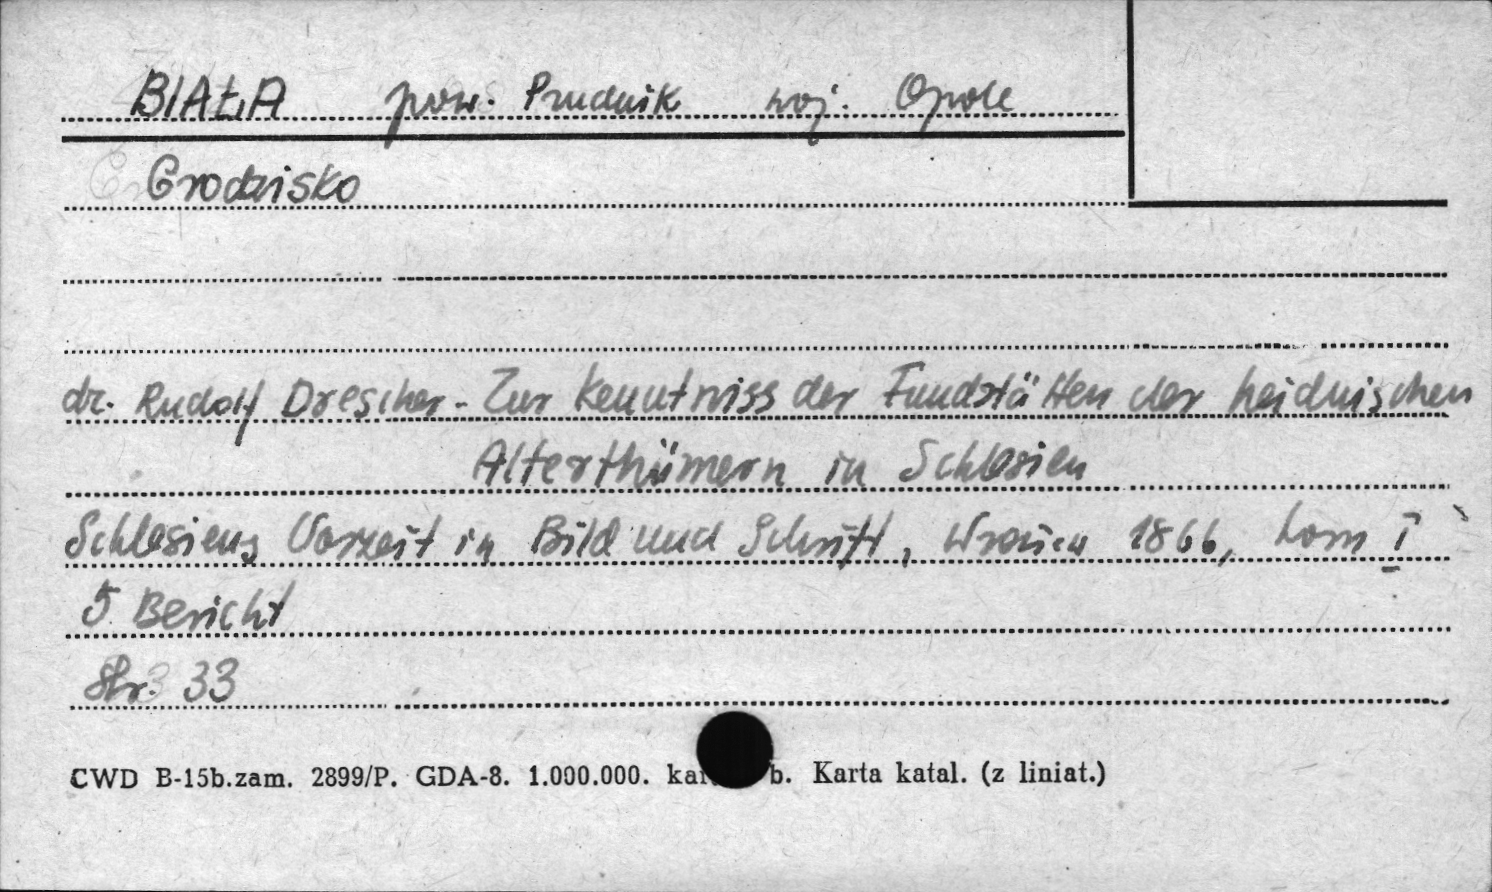 BIAŁA pow. Prudnik woj. Opole
Grodzisko
dr. Rudolf Drescher - Zur Kenntniss der Fundstätten der heidnischen
Alterthümern in Schlesien
Schlesiens Vorzeit in Bild und Schrift, 1866, tom I
5 Bericht
Str. 33
CWD B-15b.zam. 2899/P. GDA-8. 1.000.000. b. Karta katal. (z liniat.)